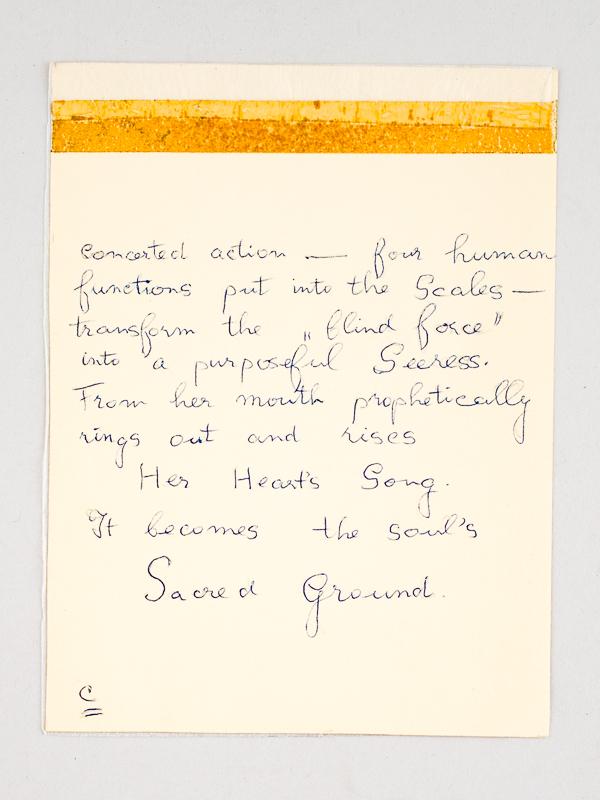 concerted action — four human
functions put into the Scales —
transform the „blind force"
into a purposeful Seeress.
From her mouth prophetically
rings out and rises
Her Heart's Song.
It becomes the soul's
Sacred Ground.
C